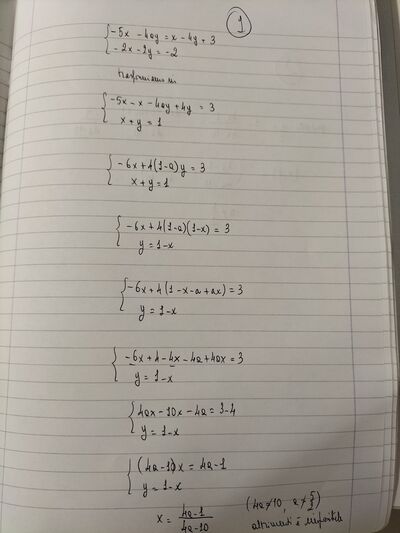 1
-5x - 4ay = x - 4y + 3
-2x - 2y = -2
trasformiamo in
-5x - x - 4ay + 4y = 3
x + y = 1
-6x + 4(1-a)y = 3
x + y = 1
-6x + 4(1-a)(1-x) = 3
y = 1-x
-6x + 4(1-x-a+ax) = 3
y = 1-x
-6x + 4 - 4x - 4a + 4ax = 3
y = 1-x
4ax - 10x - 4a = 3-4
y = 1-x
(4a-10)x = 4a-1
y = 1-x
x = (4a-1)/(4a-10) (4a≠10, a≠5/2)
altrimenti è impossibile